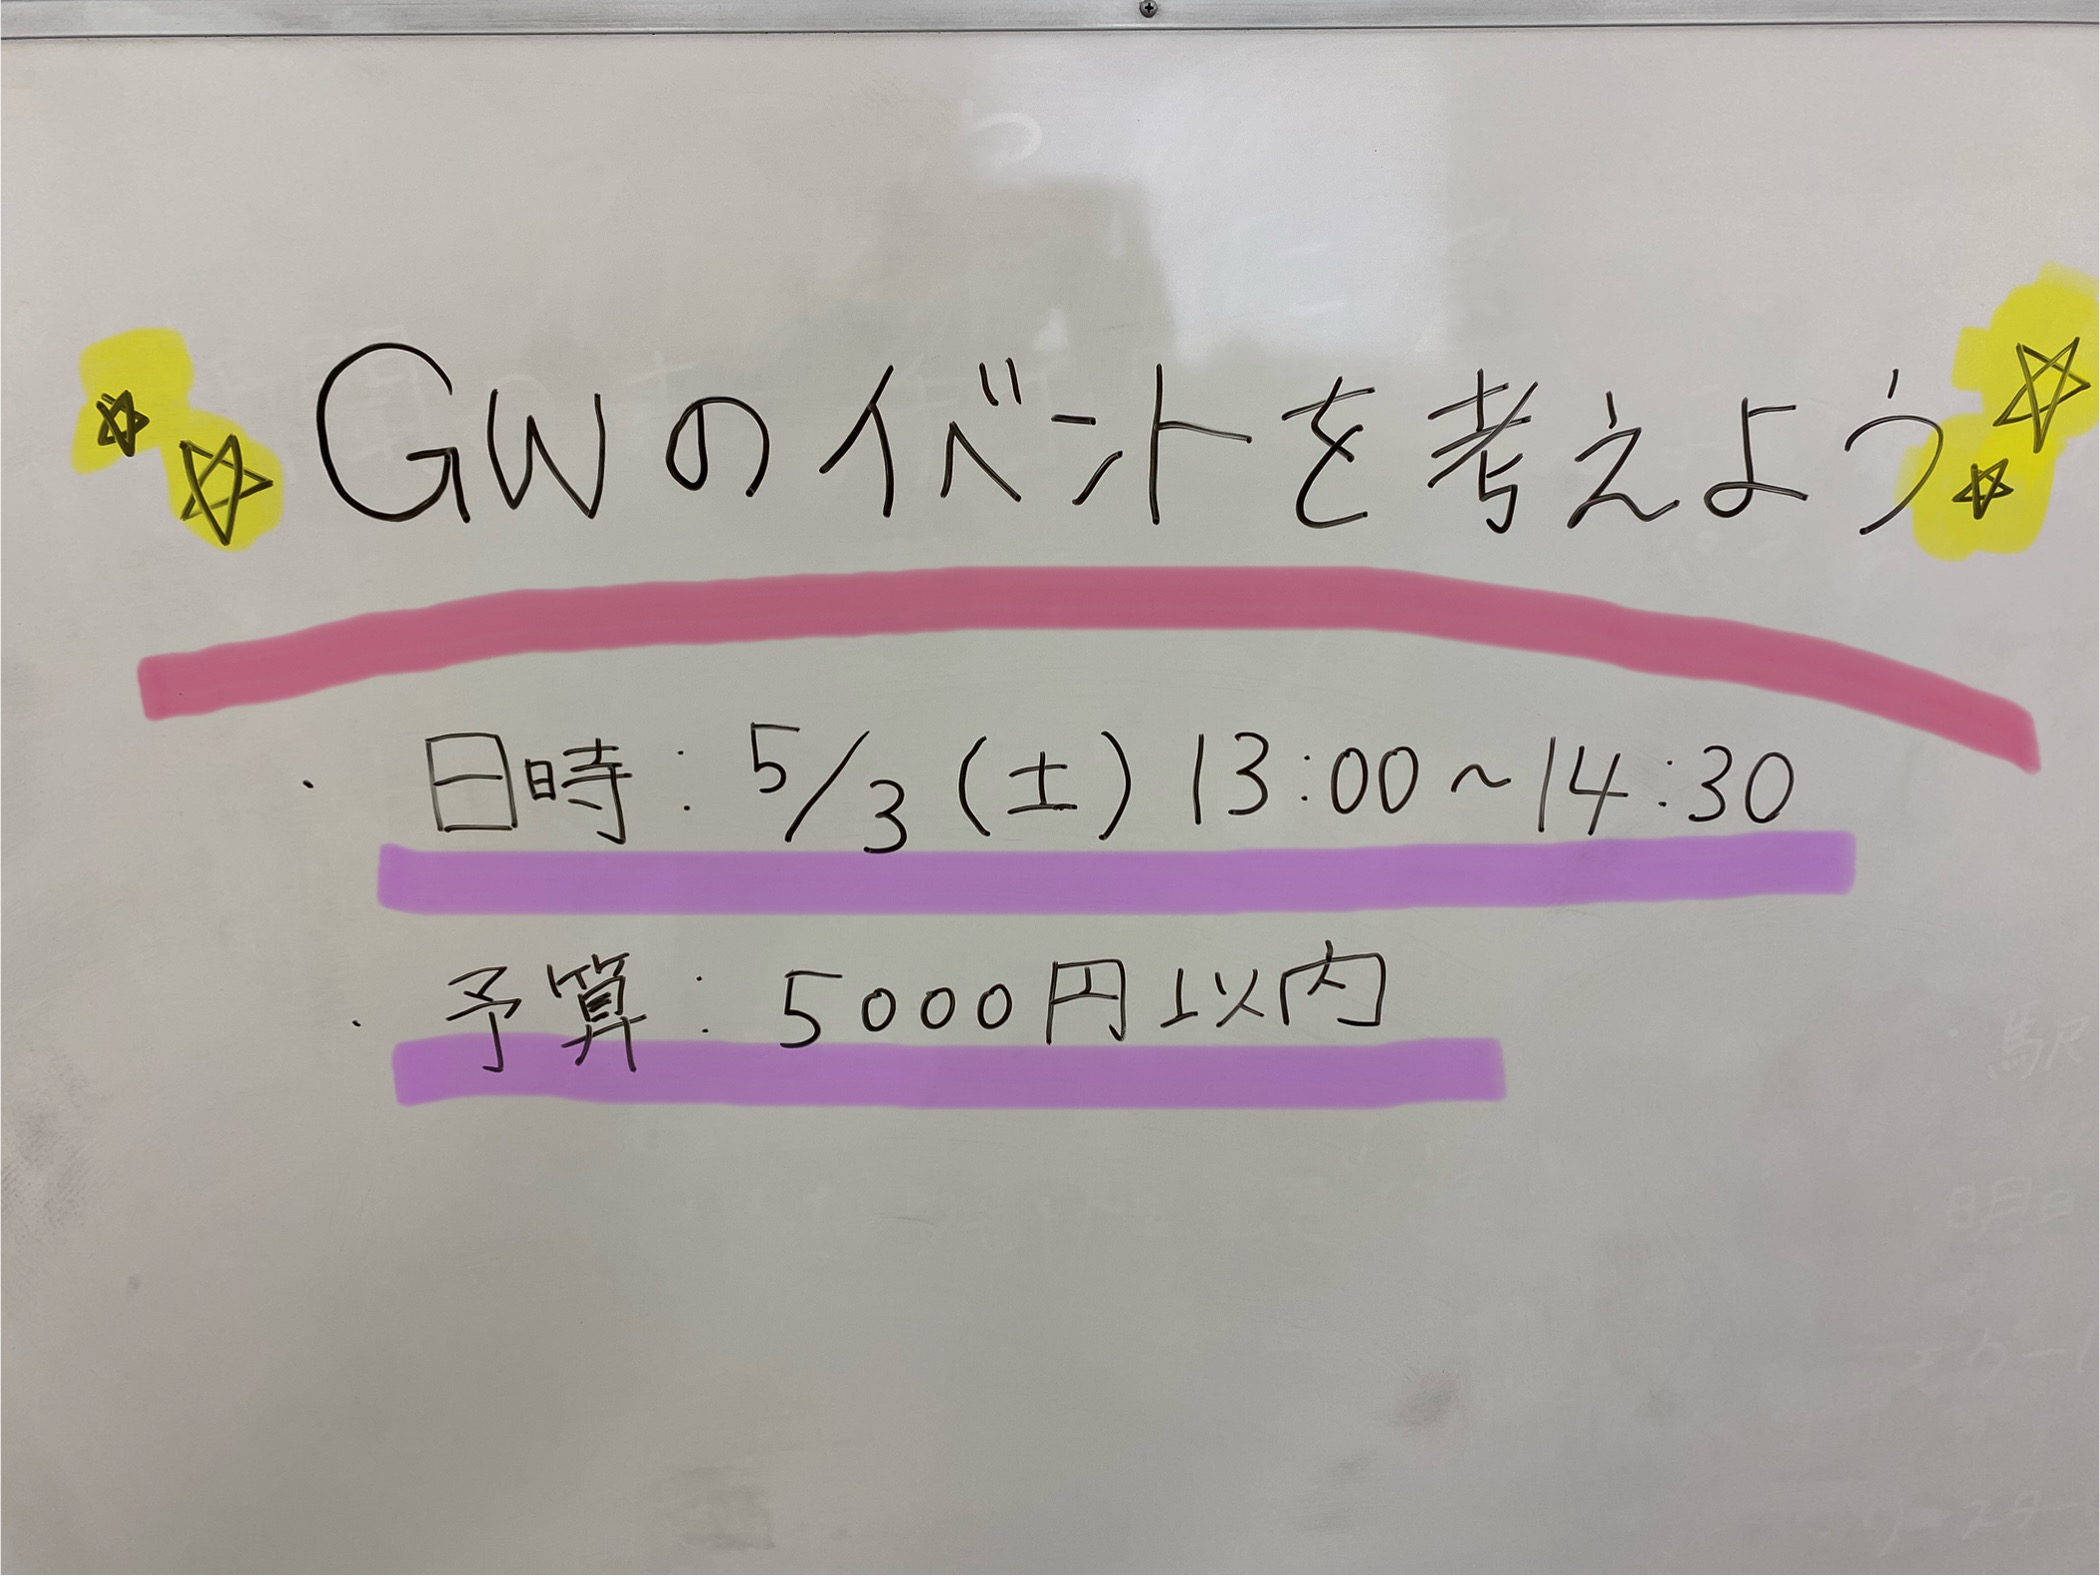 ☆☆GWのイベントを考えよう☆☆
・日時：5/3（土）13:00～14:30
・予算：5000円以内